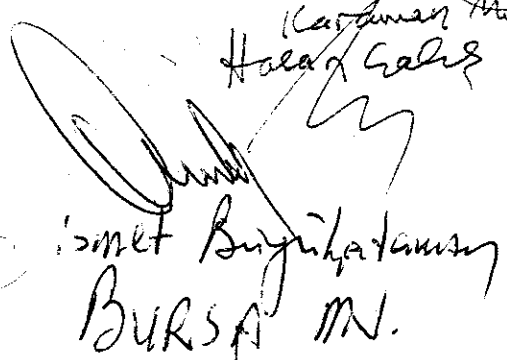 Karaman M
Hasan Çalış
İsmet Büyükataman
BURSA MV.